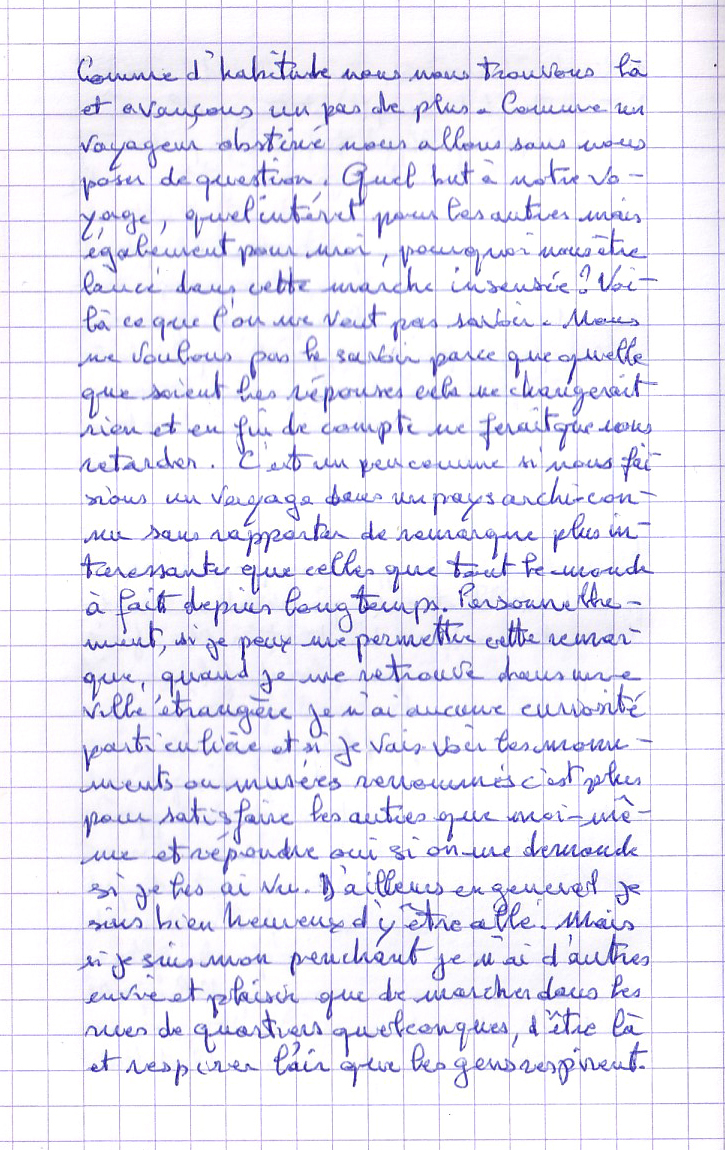 Comme d'habitude nous nous trouvons là
et avançons un pas de plus. Comme un
voyageur obstiné nous allons sans nous
poser de question. Quel but à notre vo-
yage, quel intérêt pour les autres mais
également pour moi, pourquoi nous être
lancé dans cette marche insensée? Voi-
là ce que l'on ne veut pas savoir. Nous
ne voulons pas le savoir parce que quelle
que soient les réponses cela ne changerait
rien et en fin de compte ne ferait que nous
retarder. C'est un peu comme si nous fai
sions un voyage dans un pays archi-con-
nu sans rapporter de remarque plus in-
téressante que celles que tout le monde
à fait depuis longtemps. Personnelle-
ment, si je peux me permettre cette remar-
que, quand je me retrouve dans une
ville étrangère je n'ai aucune curiosité
particulière et si je vais voir les monu-
ments ou musées renommés c'est plus
pour satisfaire les autres que moi-mê-
me et répondre oui si on me demande
si je les ai vu. D'ailleurs en général je
suis bien heureux d'y être allé. Mais
si je suis mon penchant je n'ai d'autres
envie et plaisir que de marcher dans les
rues de quartiers quelconques, d'être là
et respirer l'air que les gens respirent.